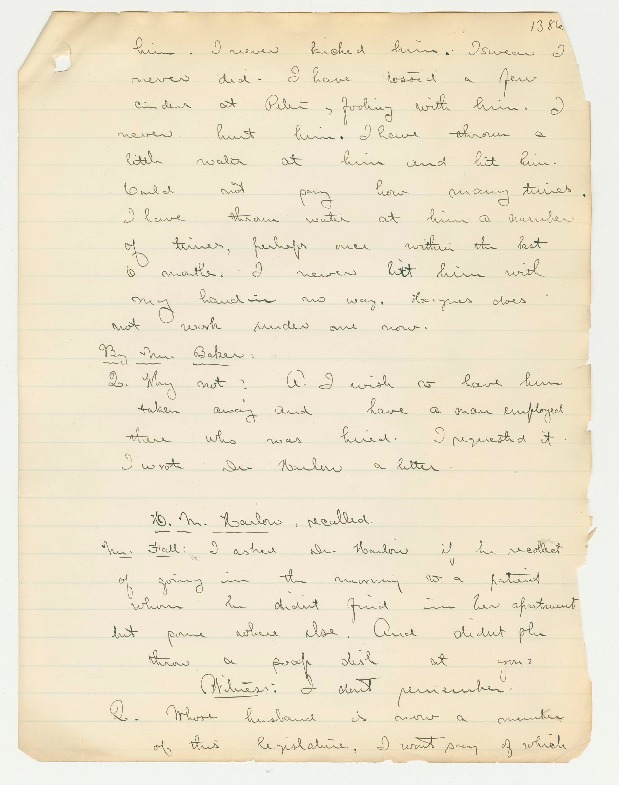 1386
him. I never kicked him. I swear I
never did. I have tossed a few
cinders at Peter, fooling with him. I
never hurt him. I have thrown a
little water at him and hit him.
Could not say how many times.
I have thrown water at him a number
of times, perhaps once within the last
6 months. I never hit him with
my hand in no way. Haynes does
not work under me now.
By Mr. Baker:
Q. Why not? A. I wish to have him
taken away and have a man employed
there who was hired. I requested it.
I wrote Dr Harlow a letter.
H. M. Harlow, recalled.
Mr. Hall: I asked Dr. Harlow if he recollect
of going in the morning to a patient
whom he didn't find in her apartment
but some where else. And didn't she
throw a soap dish at you?
Witness: I don't remember.
Q. Whose husband is now a member
of this legislature, I won't say of which